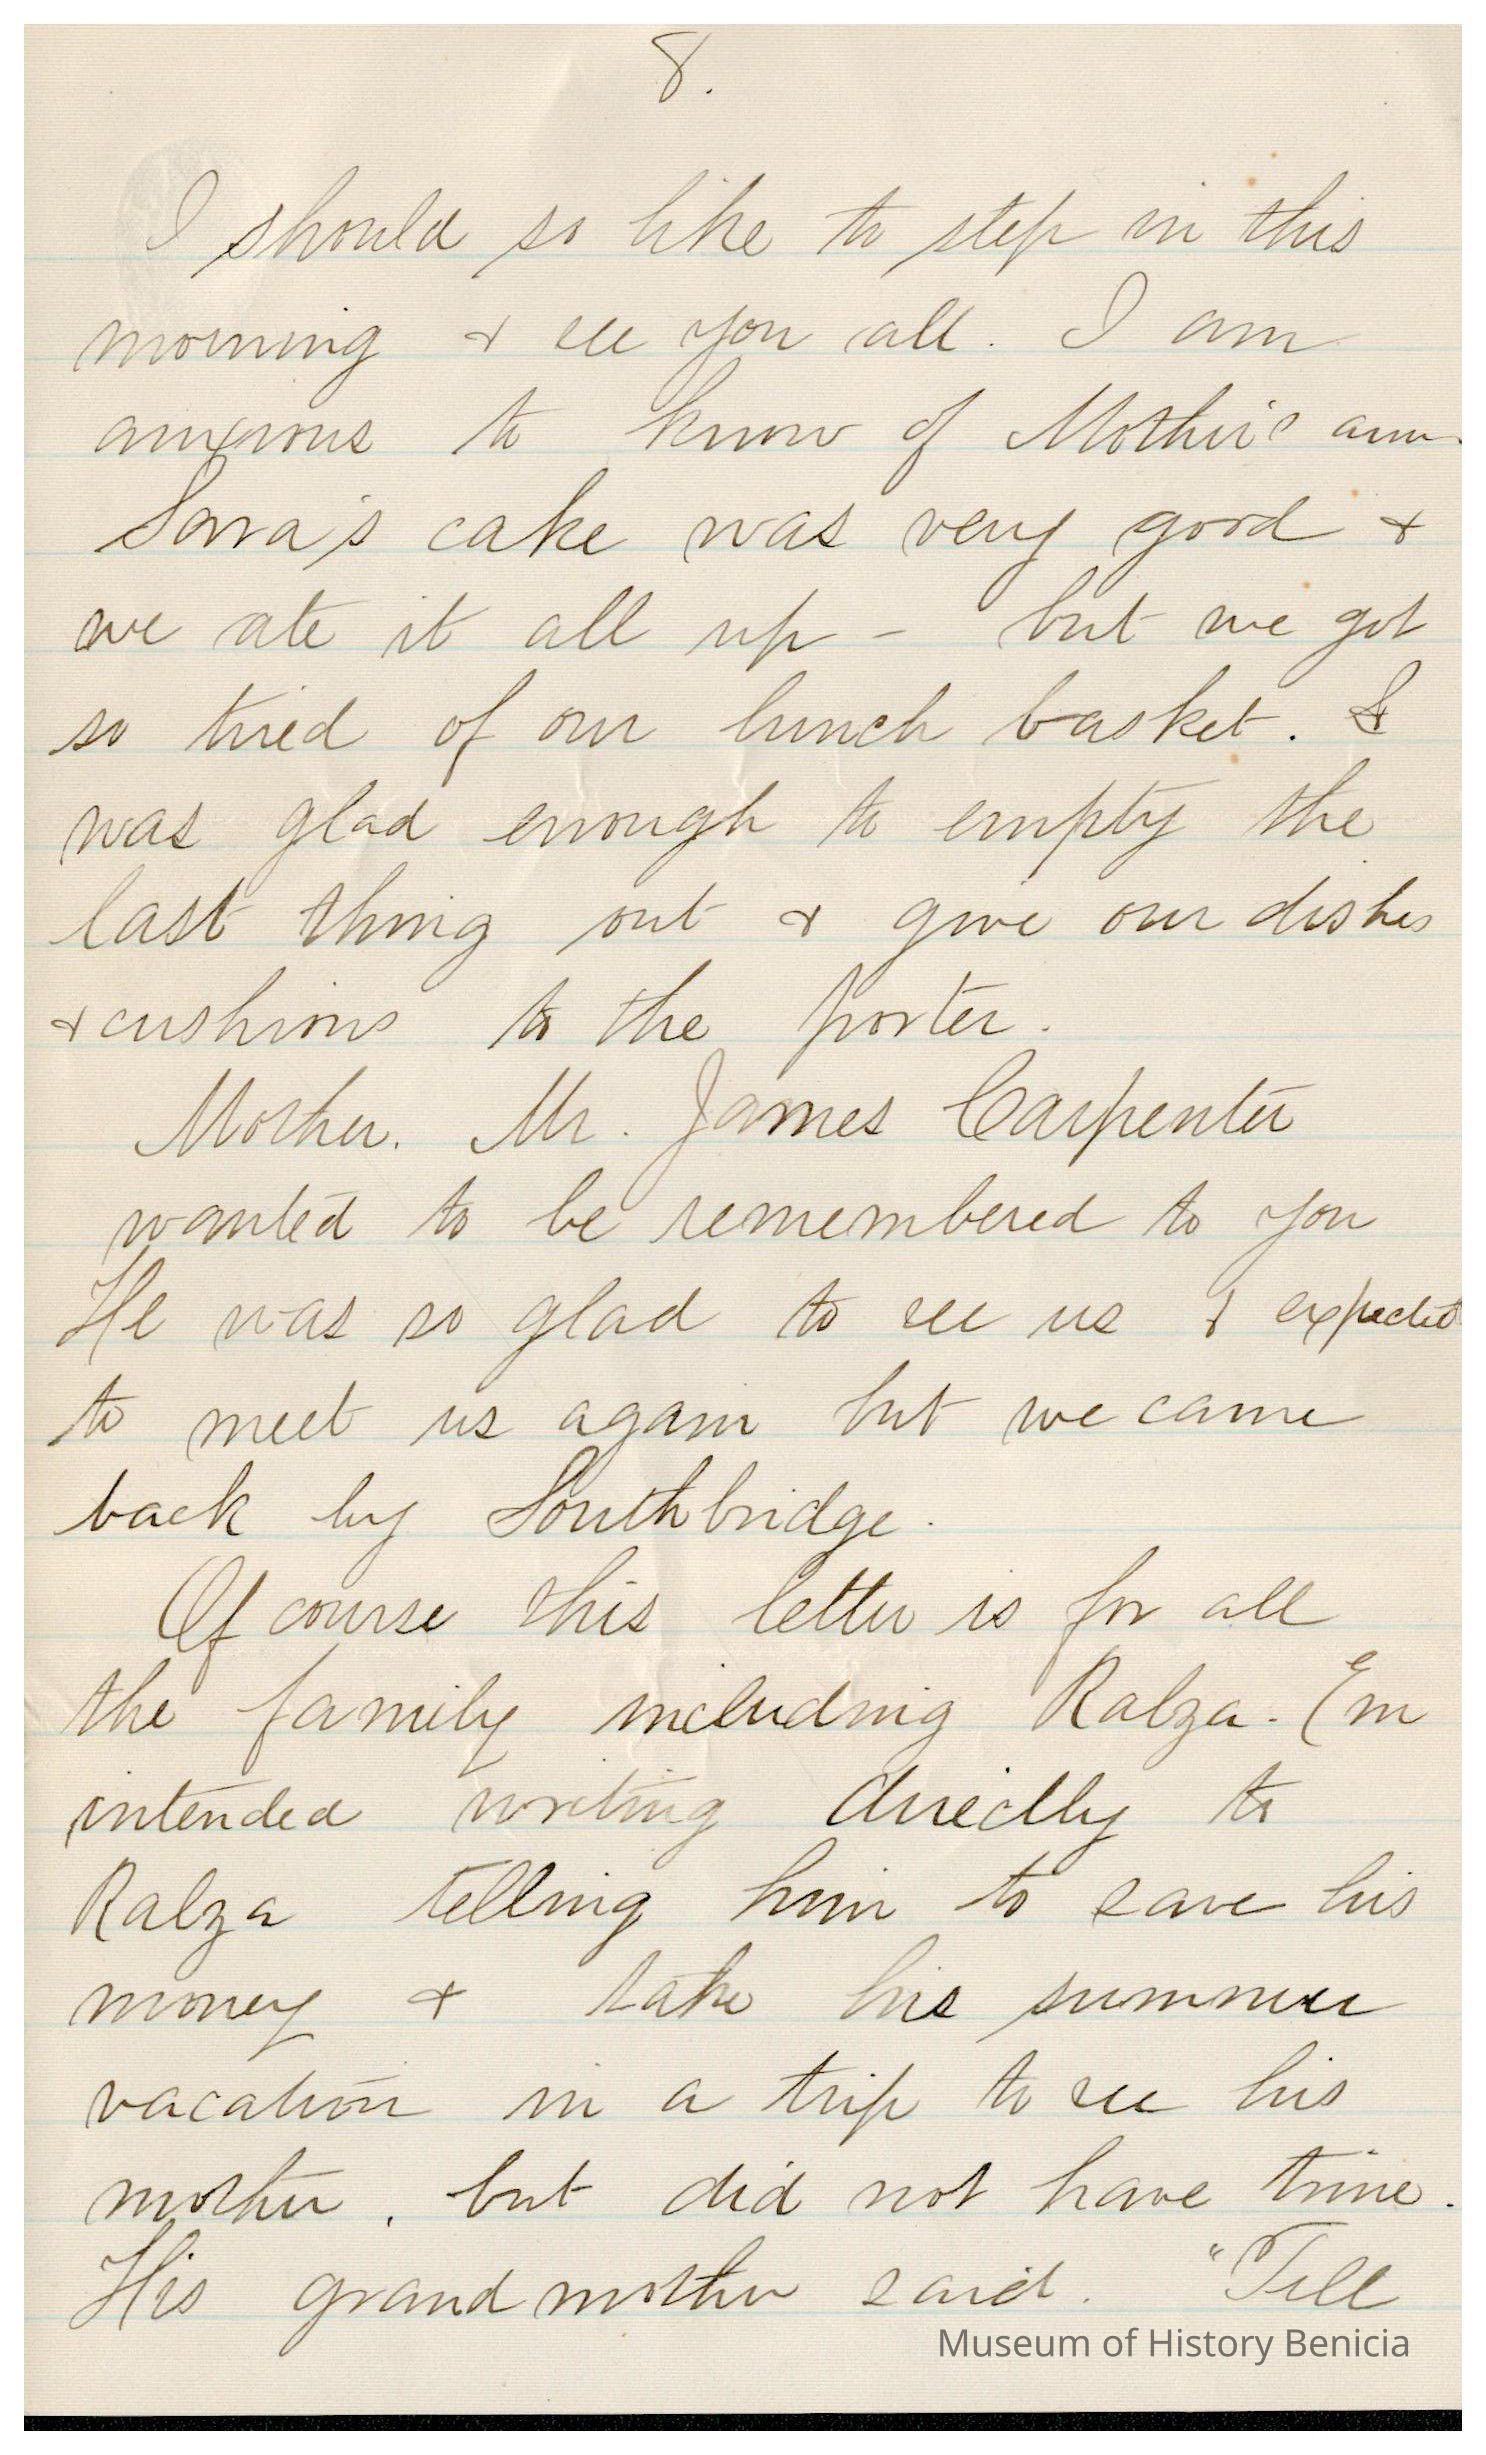 8.
I should so like to step in this
morning & see you all. I am
anxious to know of Mother's arm.
Sarra's cake was very good &
we ate it all up - but we got
so tired of our lunch basket. I
was glad enough to empty the
last thing out & give our dishes
& cushions to the porter.
Mother. Mr. James Carpenter
wanted to be remembered to you
He was so glad to see us & expected
to meet us again but we came
back by Southbridge.
Of course this letter is for all
the family including Ralza. Em
intended writing directly to
Ralza telling him to save his
money & take his summer
vacation in a trip to see his
mother, but did not have time.
His grandmother said. "Tell
Museum of History Benicia